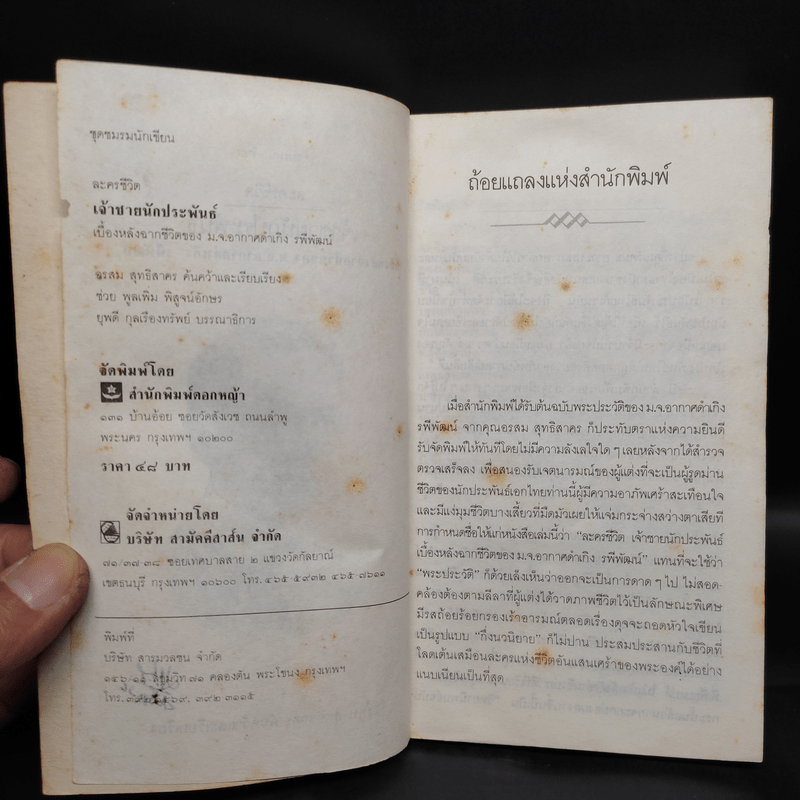 ชุดชมรมนักเขียน
ละครชีวิต
เจ้าชายนักประพันธ์
เบื้องหลังฉากชีวิตของ ม.จ.อากาศดำเกิง รพีพัฒน์
อรสม สุทธิสาคร ค้นคว้าและเรียบเรียง
ช่วย พูลเพิ่ม พิสูจน์อักษร
ยุพดี กุลเรืองทรัพย์ บรรณาธิการ
จัดพิมพ์โดย
สำนักพิมพ์ดอกหญ้า
๑๓๑ บ้านอ้อย ซอยวัดสังเวช ถนนลำพู
พระนคร กรุงเทพฯ ๑๐๒๐๐
ราคา ๔๘ บาท
จัดจำหน่ายโดย
บริษัท สามัคคีสาส์น จำกัด
๗๑/๓๗-๓๘ ซอยเทศบาลสาย ๒ แขวงวัดกัลยาณ์
เขตธนบุรี กรุงเทพฯ ๑๐๖๐๐ โทร.๔๖๕-๕๙๓๒ ๔๖๕-๗๖๑๑
พิมพ์ที่
บริษัท สารมวลชน จำกัด
สุขุมวิท ๗๑ คลองตัน พระโขนง กรุงเทพฯ
โทร. ๓๙๒ ๓๑๑๕
ถ้อยแถลงแห่งสำนักพิมพ์
เมื่อสำนักพิมพ์ได้รับต้นฉบับพระประวัติของ ม.จ.อากาศดำเกิง
รพีพัฒน์ จากคุณอรสม สุทธิสาคร ก็ประทับตราแห่งความยินดี
รับจัดพิมพ์ให้ทันทีโดยไม่มีความลังเลใจใด ๆ เลยหลังจากได้สำรวจ
ตรวจเสร็จลง เพื่อสนองรับเจตนารมณ์ของผู้แต่งที่จะเป็นผู้รูดม่าน
ชีวิตของนักประพันธ์เอกไทยท่านนี้ผู้มีความอาภัพเศร้าสะเทือนใจ
และมีแง่มุมชีวิตบางเสี้ยวที่มืดมัวเผยให้แจ่มกระจ่างสว่างตาเสียที
การกำหนดชื่อให้แก่หนังสือเล่มนี้ว่า "ละครชีวิต เจ้าชายนักประพันธ์
เบื้องหลังฉากชีวิตของ ม.จ.อากาศดำเกิง รพีพัฒน์" แทนที่จะใช้ว่า
"พระประวัติ" ก็ด้วยเล็งเห็นว่าออกจะเป็นการดาด ๆ ไป ไม่สอด-
คล้องต้องตามลีลาที่ผู้แต่งได้วาดภาพชีวิตไว้เป็นลักษณะพิเศษ
มีรสถ้อยร้อยกรองเร้าอารมณ์ตลอดเรื่องดุจจะถอดหัวใจเขียน
เป็นรูปแบบ "กึ่งนวนิยาย" ก็ไม่ปาน ประสมประสานกับชีวิตที่
โลดเต้นเสมือนละครแห่งชีวิตอันแสนเศร้าของพระองค์ได้อย่าง
แนบเนียนเป็นที่สุด